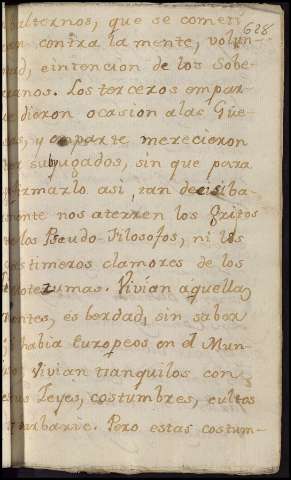 628
alternos, que se cometi
an contra la mente, volun-
ad, e intencion de los Sobe-
ranos. Los terceros en par-
dieron ocasion a las Gue-
as, y en parte merecieron
subyugados, sin que para
firmarlo asi, tan decisiba-
mente nos aterren los gritos
los Pseudo Filosofos, ni los
lastimeros clamores de los
Motezumas. Vivian aquellas
entes, es berdad, sin saber
habia Europeos en el Mun-
Vivian tranquilos con
sus Leyes, costumbres, cultos
Pero estas costum-